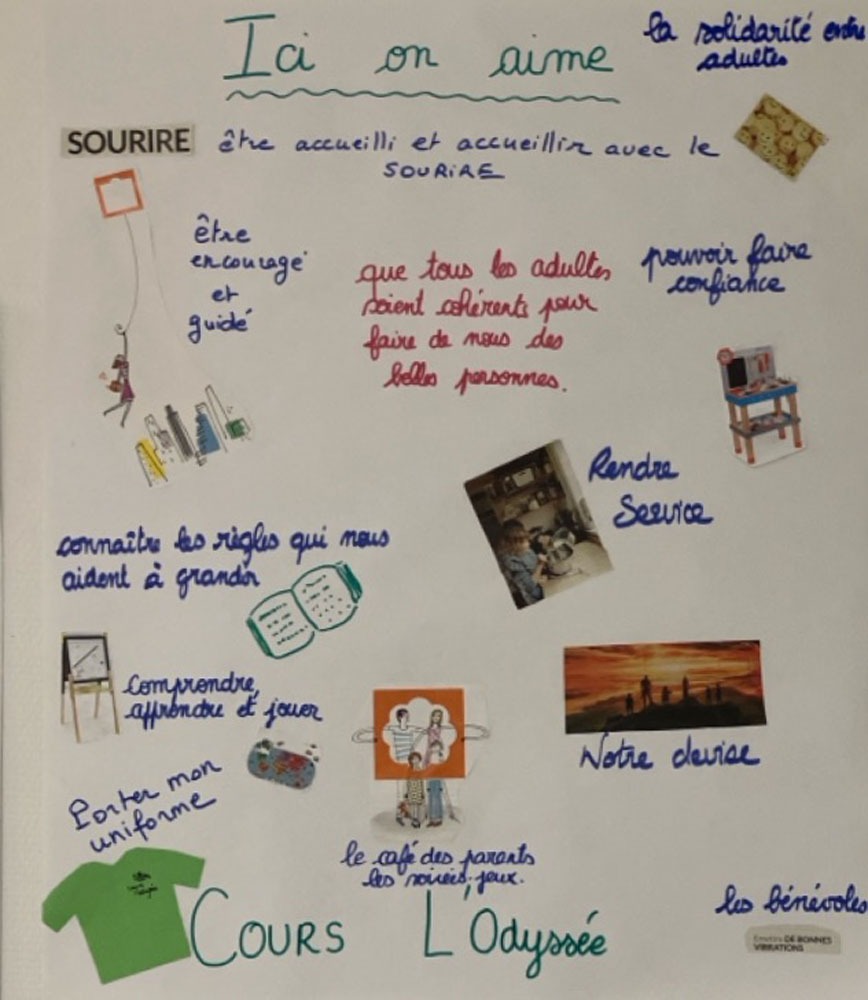 Ici on aime
la solidarité entre
adultes
SOURIRE
être accueilli et accueillir avec le
SOURIRE
être
encouragé
et
guidé
que tous les adultes
soient cohérents pour
faire de nous des
belles personnes.
pouvoir faire
confiance
Rendre
Service
connaître les règles qui nous
aident à grandir
Comprendre,
apprendre et jouer
Notre devise
Porter mon
uniforme
le café des parents
les soirées-jeux.
les bénévoles
Emettre DE BONNES
VIBRATIONS
COURS L'Odyssée